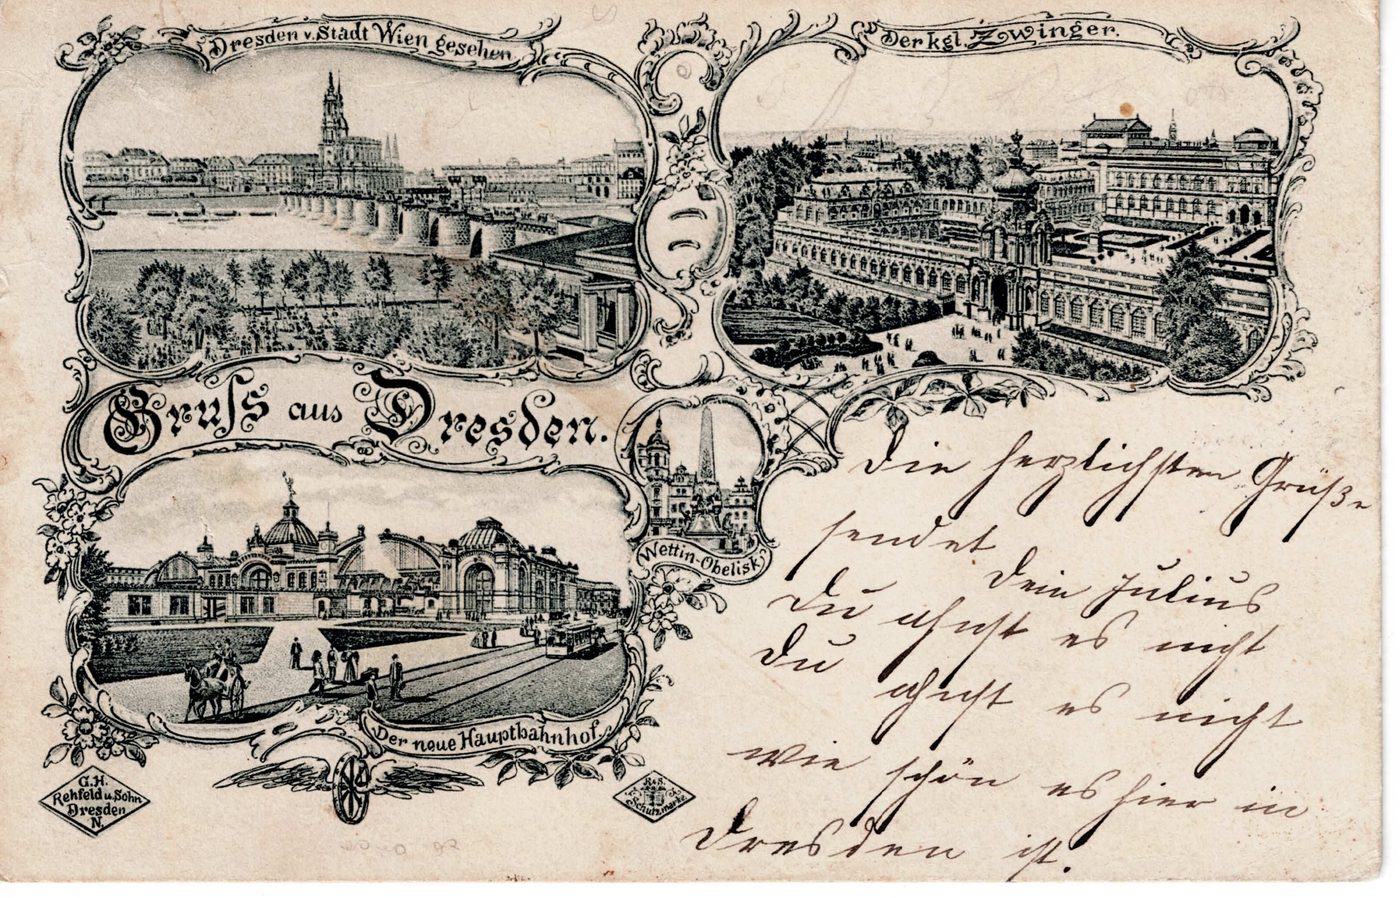 Dresden v. Stadt Wien gesehen.
Der kgl. Zwinger.
Gruſs aus Dresden.
Wettin-Obelisk
Der neue Hauptbahnhof.
G.H.
Rehfeld u. Sohn
Dresden
N.
R & S.
Schutzmarke
Die herzlichsten Grüße
sendet
Dein Julius
Du ahnst es nicht
Du
ahnst es nicht
wie schön es hier in
Dresden ist.